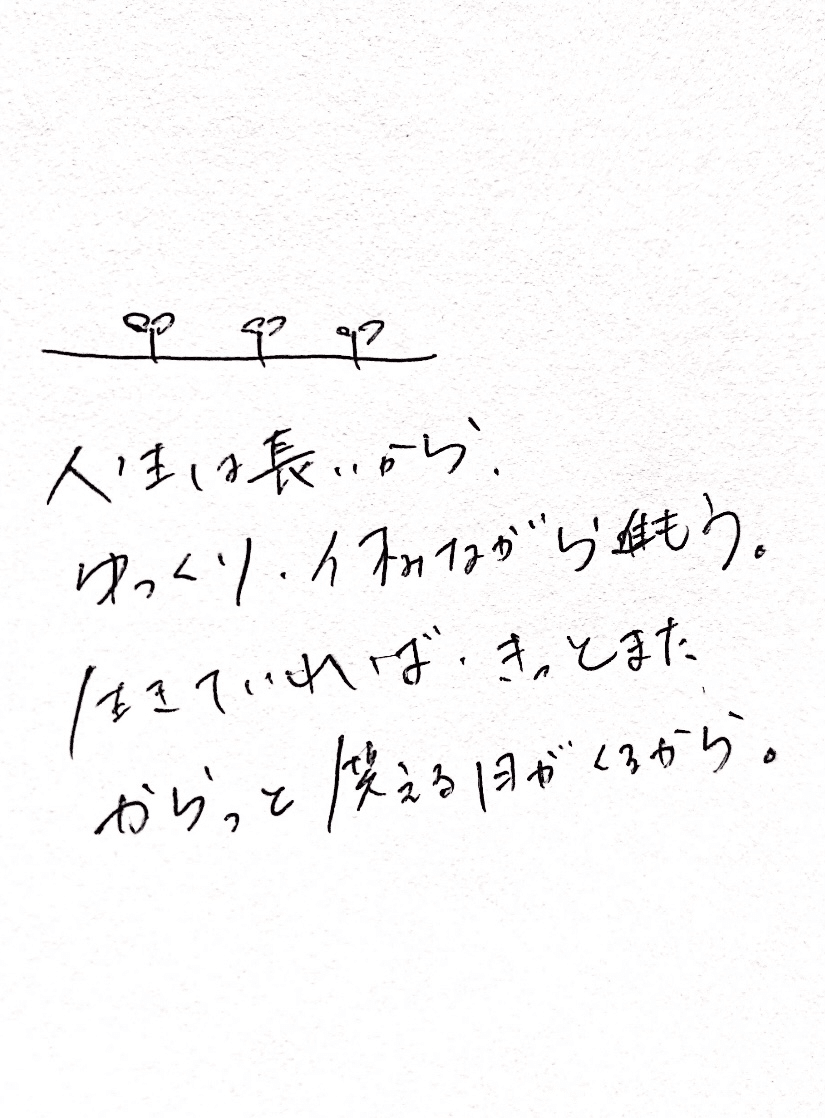 人生は長いから、
ゆっくり、休みながら進もう。
生きていれば、きっとまた
からっと笑える日がくるから。